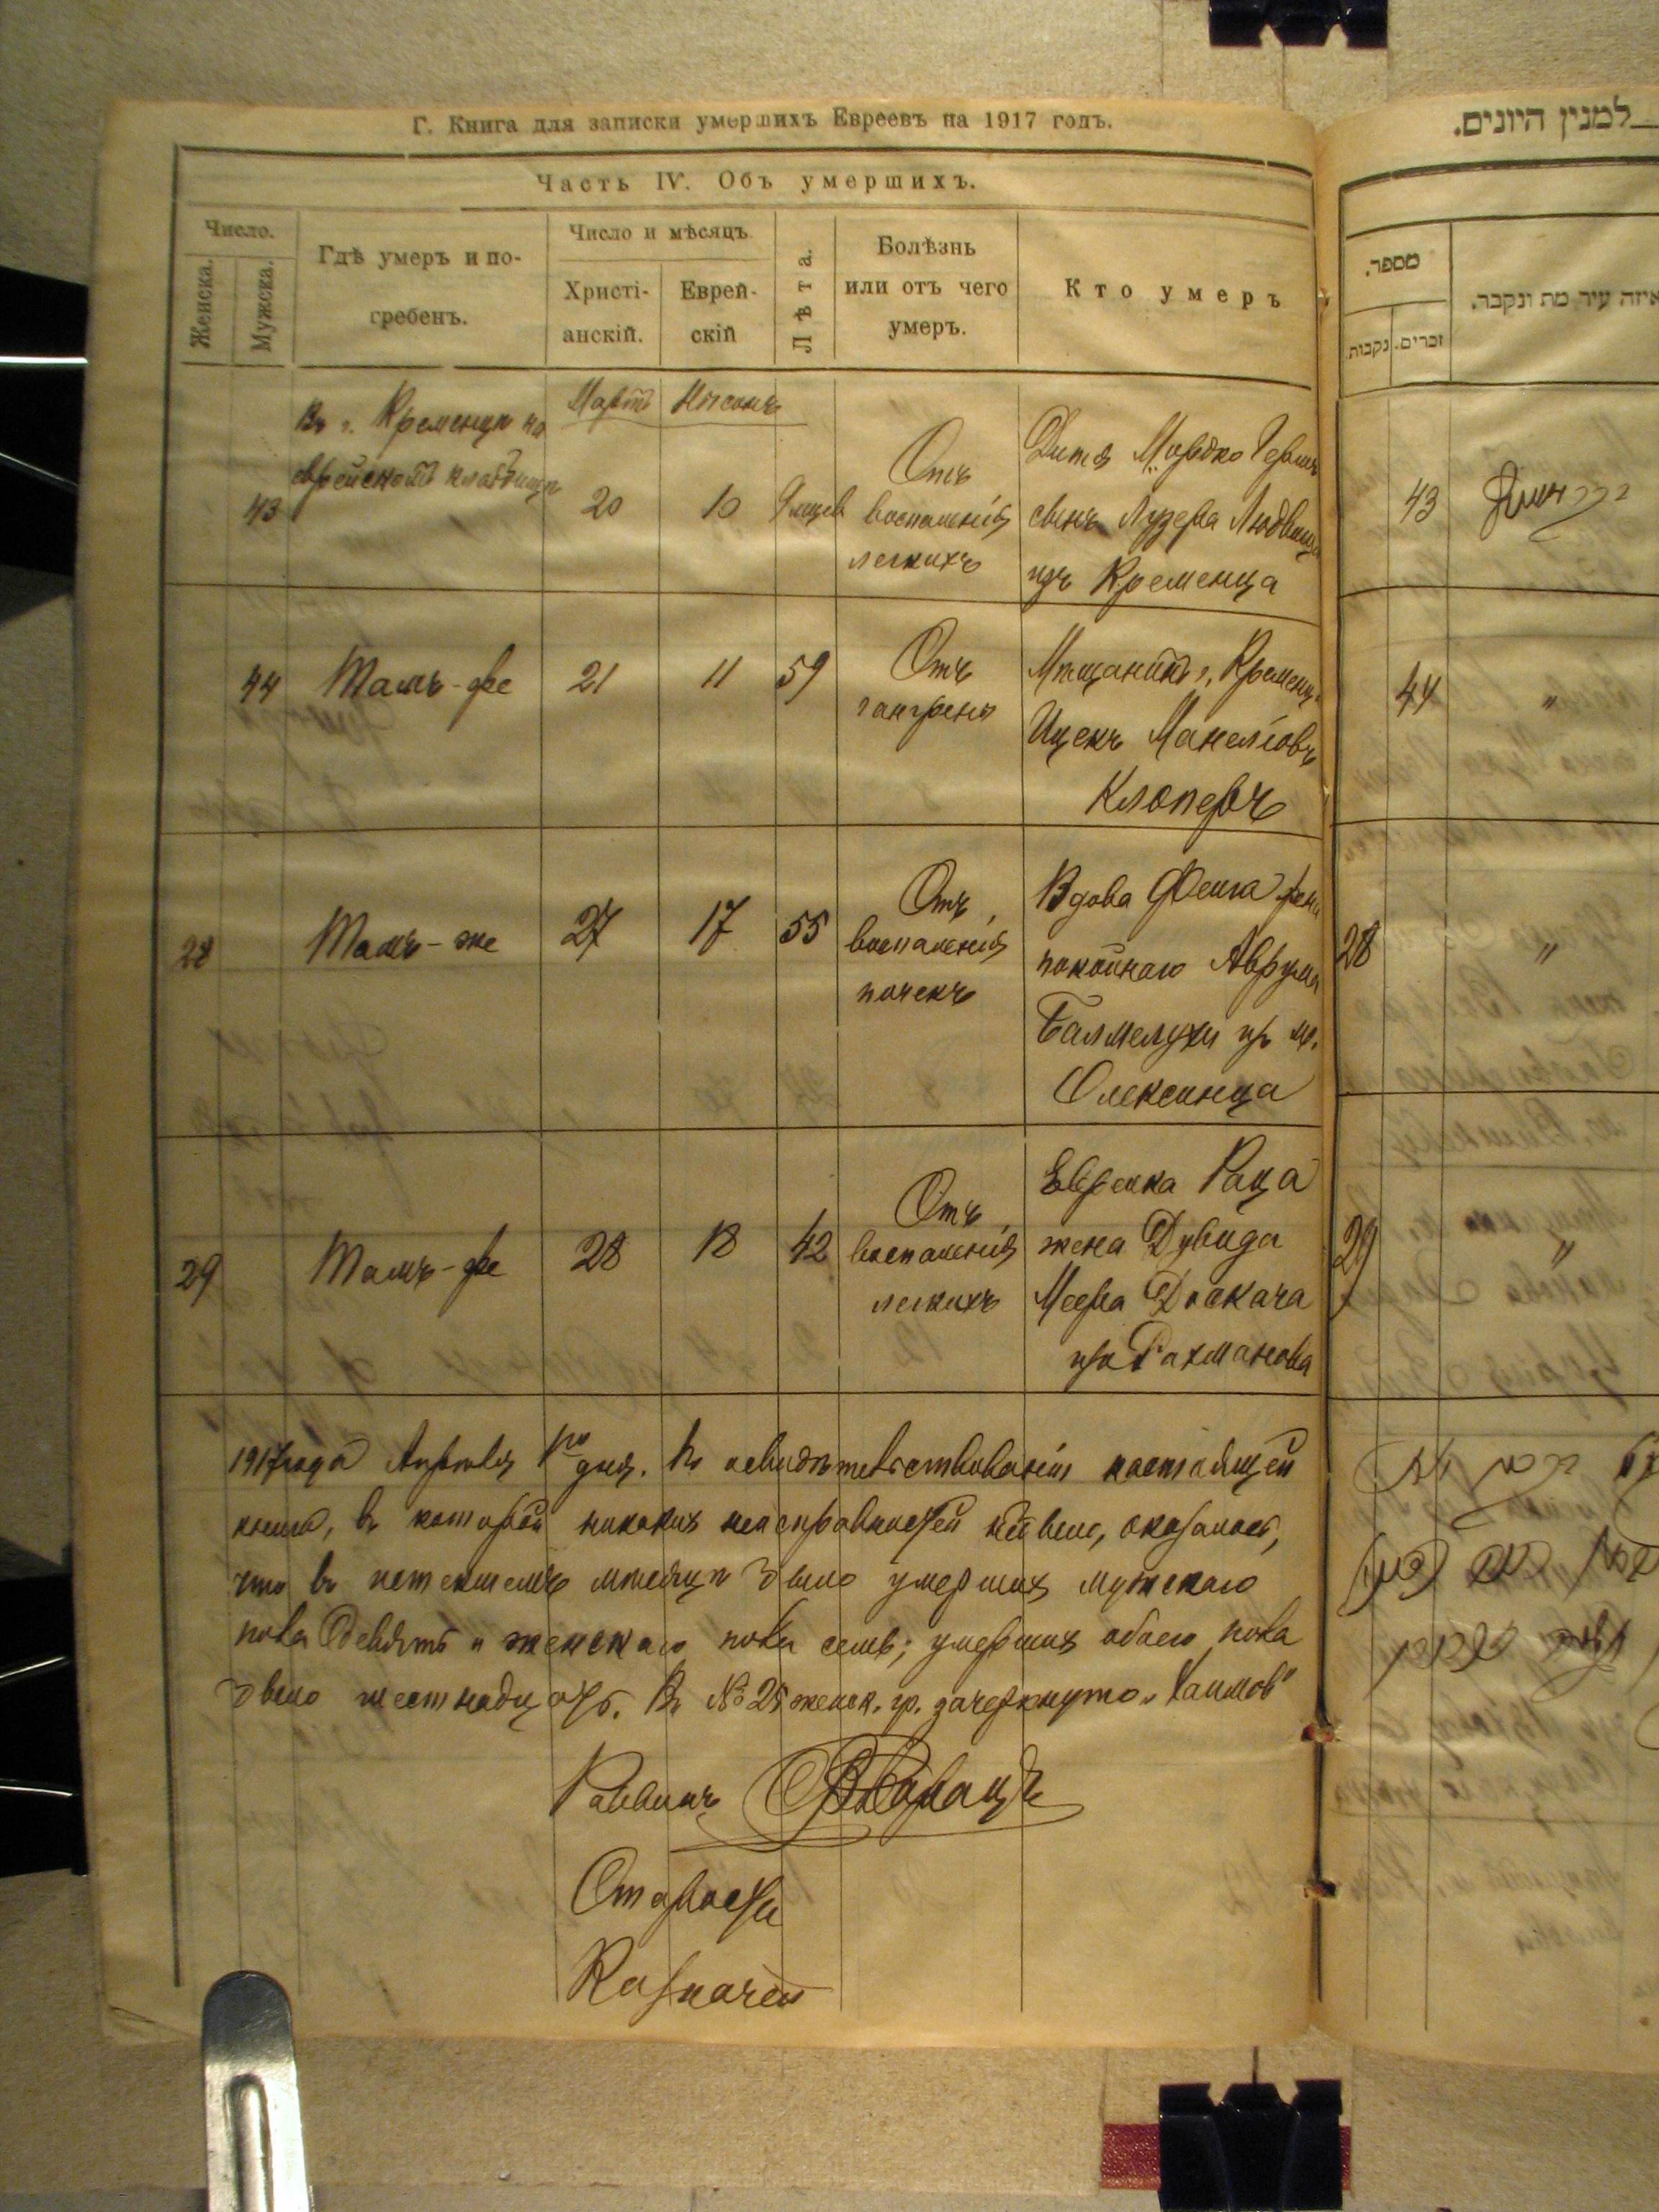 Г. Книга для записки умершихъ Евреевъ на 1917 годъ.
Часть IV. Объ умершихъ.
Число.
Женска.
Мужска.
Гдѣ умеръ и по-
гребенъ.
Число и мѣсяцъ
Христі-
анскій.
Еврей-
скій
Лѣта.
Болѣзнь
или отъ чего
умеръ.
Кто умеръ
Мартъ Нисонъ
43
Въ г. Кременцѣ на
еврейскомъ кладбищѣ
20
10
9 мцев
Отъ
воспаленія
легкихъ
Дитя Мордко Герш
сынъ Лузера
изъ Кременца
44
Тамъ-же
21
11
59
Отъ
гангрены
Мѣщанинъ г. Кременца
Ицекъ Манеліовъ
Клоперъ
28
Тамъ-же
27
17
55
Отъ
воспаленія
почекъ
Вдова Фейга жена
покойнаго Аврума
Балмелухи изъ м.
Олексинца
29
Тамъ-же
28
18
42
Отъ
воспаленія
легкихъ
Еврейка Раца
жена Дувида
Меера Доскача
изъ Рахманова
1917 года Апрѣля 1го дня. По освидѣтельствованіи настоящей
книги, въ которой никакихъ неисправностей не было, оказалось,
что въ истекшемъ мѣсяцѣ было умершихъ мужскаго
пола девять и женскаго пола семь; умершихъ обоего пола
было шестнадцать. Въ № 25 женск. гр. зачеркнуто „Хаимов"
Раввинъ
Старосты
Казначей
למנין היונים.
מספר.
נקבות.
זכרים.
איזה עיר מת ונקבר.
43
44
"
28
"
29
"